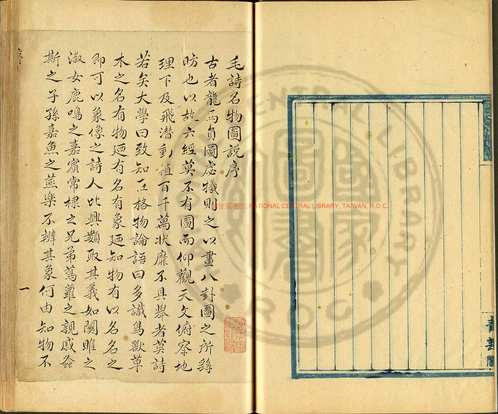 毛詩名物圖說序
古者龍馬負圖虙犧則之以畫八卦圖之所繇
昉也以故六經莫不有圖而仰觀天文俯察地
理下及飛潛動植百千萬狀靡不具舉者莫詩
若矣大學曰致知在格物論語曰多識鳥獸草
木之名有物廼有名有象廼知物有以名名之
即可以象像之詩人比興類取其義如關雎之
淑女鹿鳴之嘉賓常棣之兄弟蔦蘿之親戚螽
斯之子孫嘉魚之燕樂不辨其象何由知物不
一
NATIONAL CENTRAL LIBRARY, TAIWAN, R.O.C.